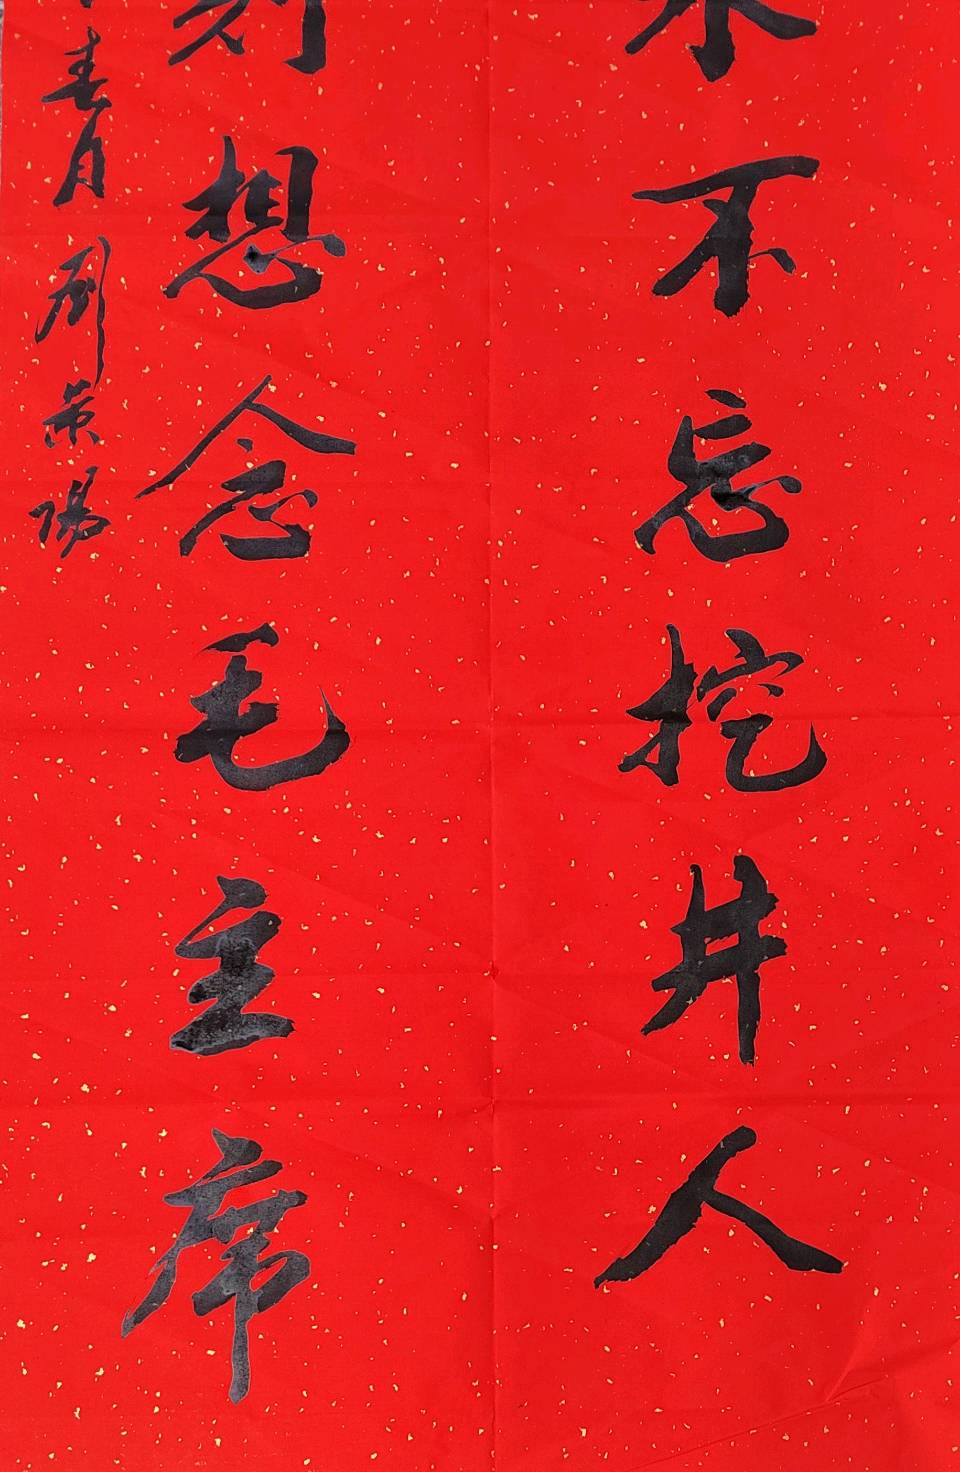 水不忘挖井人
刻想念毛主席
春月刘景阳